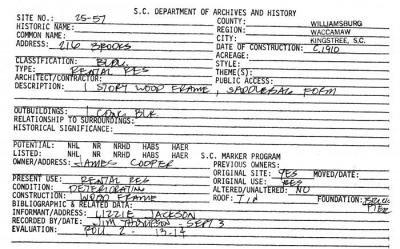 S.C. DEPARTMENT OF ARCHIVES AND HISTORY
SITE NO.: 25-57
COUNTY: WILLIAMSBURG
HISTORIC NAME:
REGION: WACCAMAW
COMMON NAME:
CITY: KINGSTREE, S.C.
ADDRESS: 216 BROOKS
DATE OF CONSTRUCTION: C.1910
ACREAGE:
CLASSIFICATION: BLDG.
STYLE:
TYPE: RENTAL RES
THEME(S):
ARCHITECT/CONTRACTOR:
PUBLIC ACCESS:
DESCRIPTION: 1 STORY WOOD FRAME, SADDLEBAG FORM
OUTBUILDINGS: 1 CONC BLK.
RELATIONSHIP TO SURROUNDINGS:
HISTORICAL SIGNIFICANCE:
POTENTIAL: NHL NR NRHD HABS HAER
LISTED: NHL NR NRHD HABS HAER S.C. MARKER PROGRAM
OWNER/ADDRESS: JAMES COOPER
PREVIOUS OWNERS:
ORIGINAL SITE: YES MOVED/DATE:
PRESENT USE: RENTAL RES
ORIGINAL USE: RES
CONDITION: DETERIORATING
ALTERED/UNALTERED: NO
CONSTRUCTION: WOOD FRAME
ROOF: TIN FOUNDATION: BRICK PIER
BIBLIOGRAPHIC & RELATED DATA:
INFORMANT/ADDRESS: LIZZIE JACKSON
RECORDED BY/DATE: JIM THOMPSON - SEPT 3
EVALUATION: ROLL 2 - 13-14